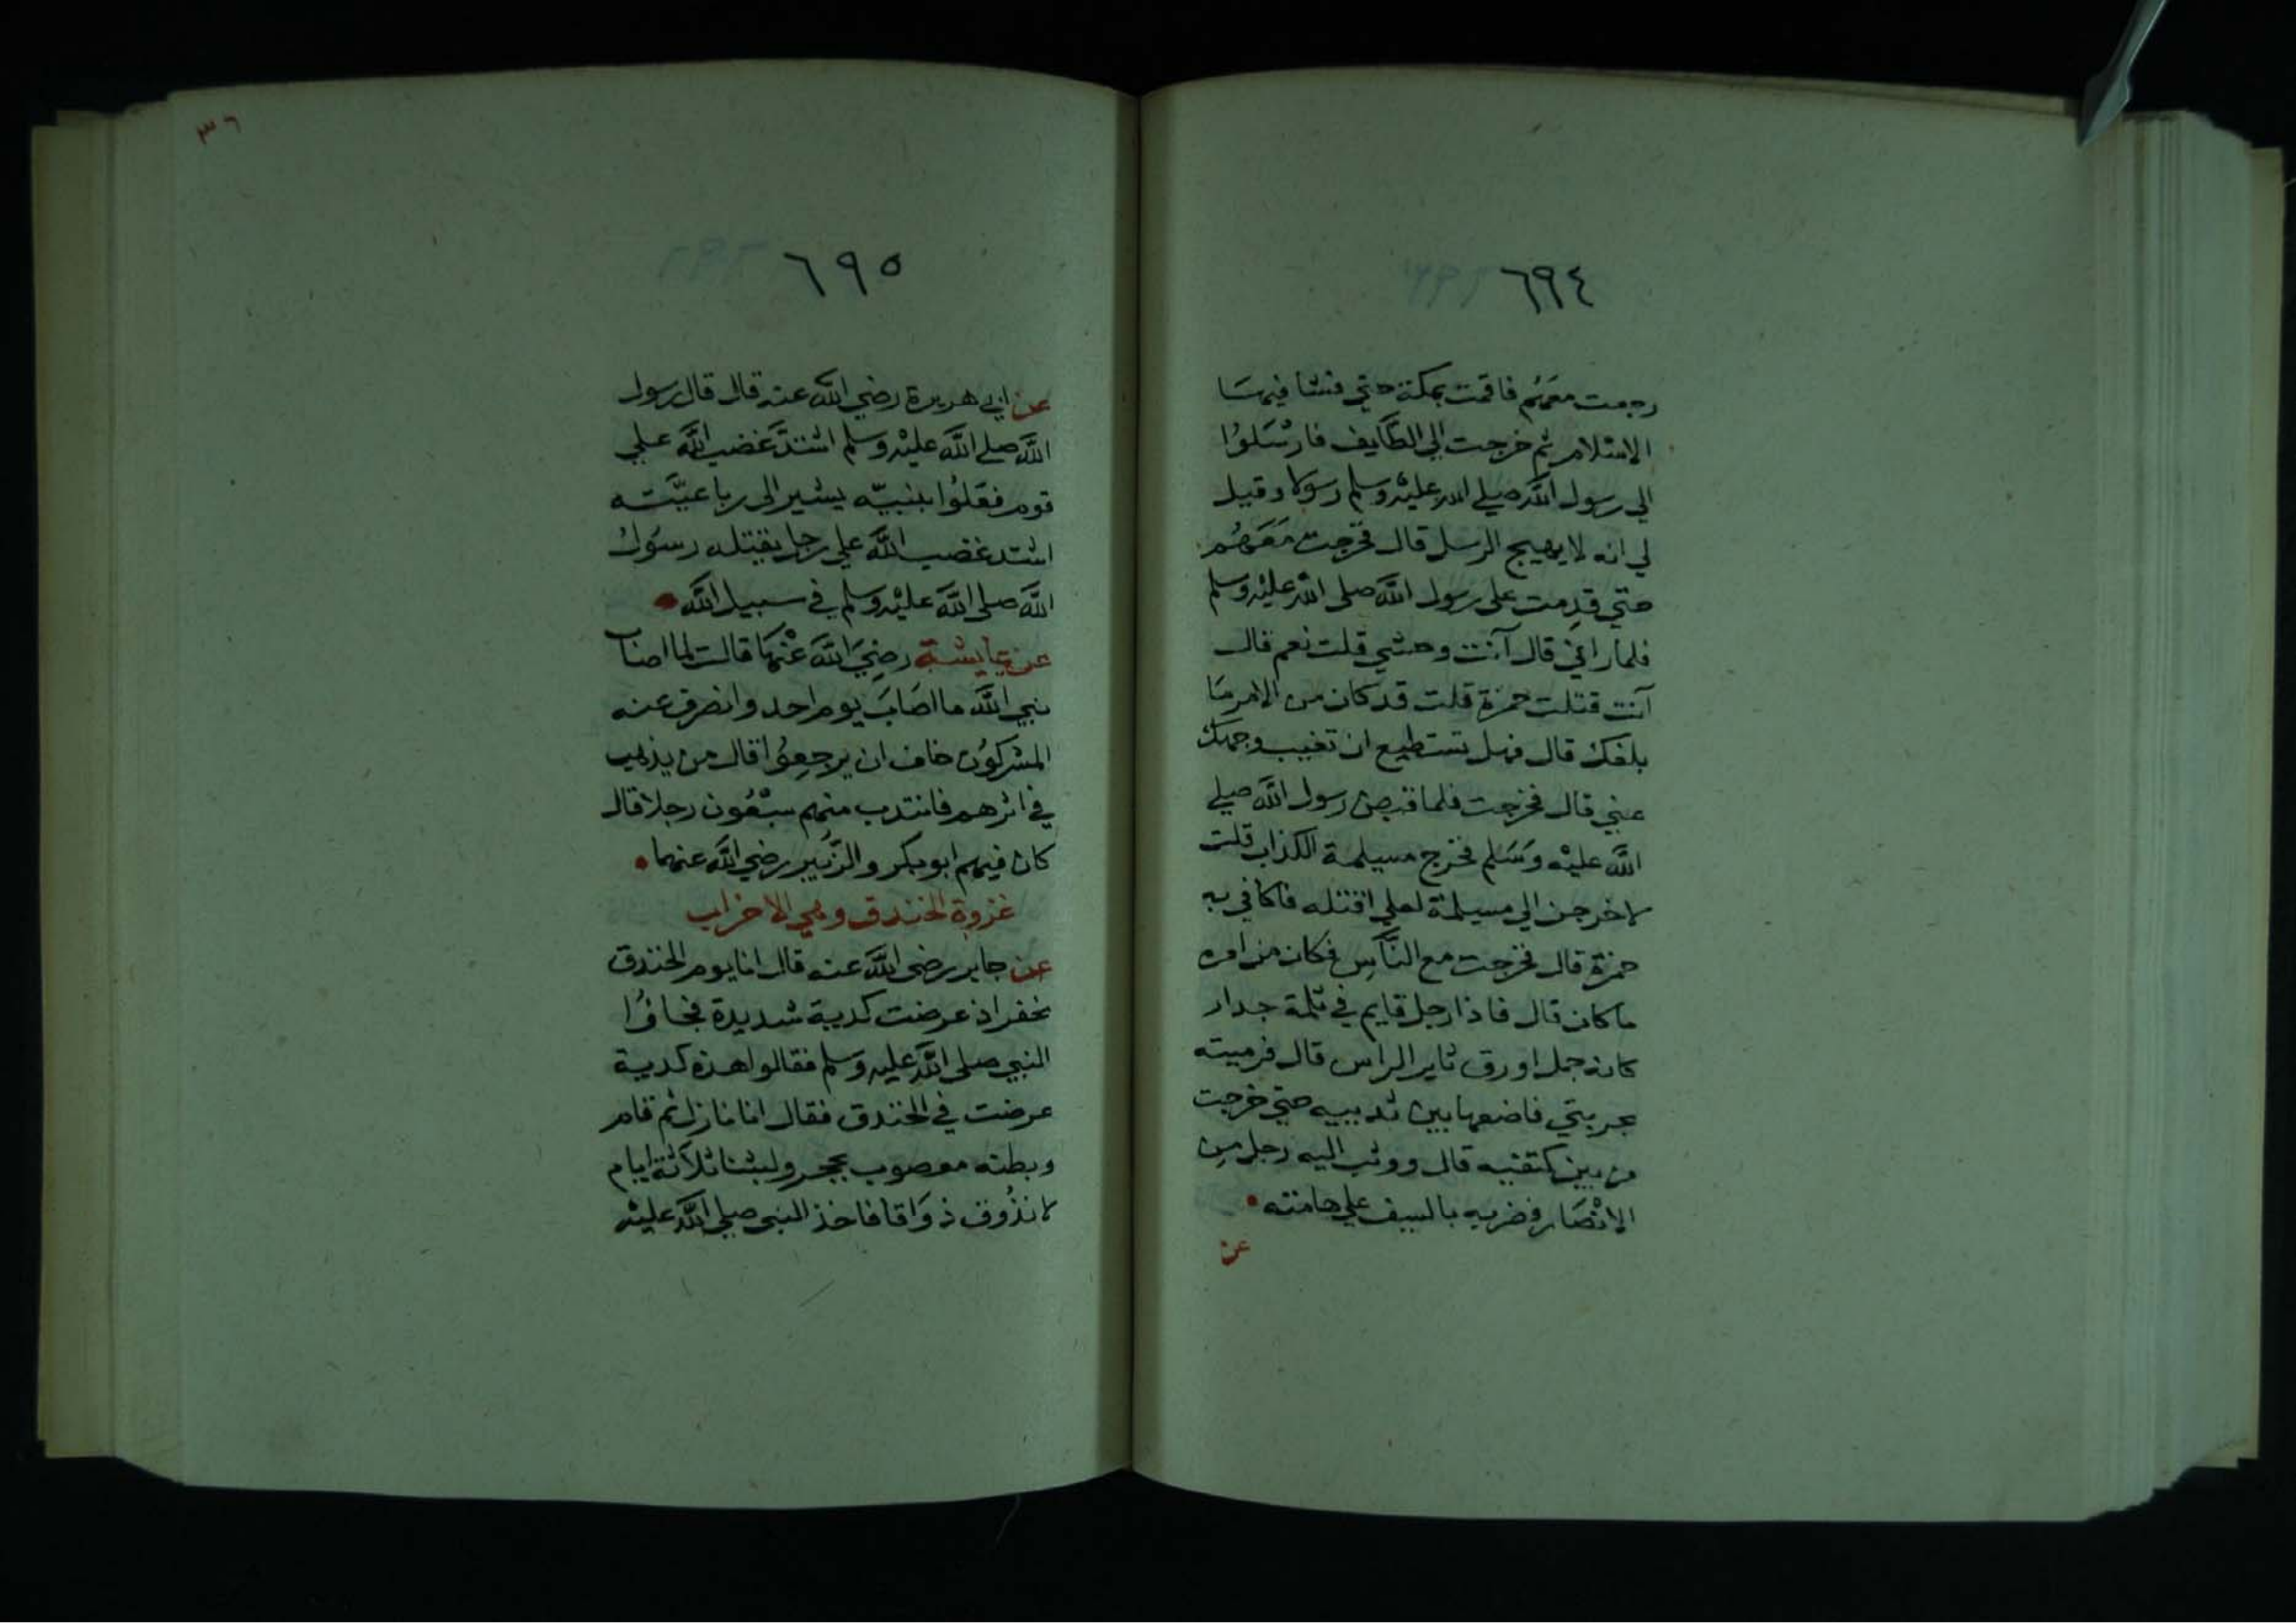 ٦٩٤
رجعت معهم فاقمت بمكة حتي فشا فيها
الاسلام ثم خرجت الي الطايف فارسلوا
الي رسول الله صلي الله عليه وسلم رسولا وقيل
لي انه لا يهيج الرسل قال فخرجت معهم
حتي قدمت على رسول الله صلى الله عليه وسلم
فلما راني قال آنت وحشي قلت نعم قال
آنت قتلت حمزة قلت قد كان من الامر ما
بلغك قال فهل تستطيع ان تغيب وجهك
عني قال فخرجت فلما قبض رسول الله صلي
الله عليه وسلم فخرج مسيلمة الكذاب قلت
لاخرجن الي مسيلمة لعلي اقتله فاكافي به
حمزة قال فخرجت مع الناس فكان من امره
ما كان قال فاذا رجل قايم في ثلمة جدار
كانه جمل اورق ثاير الراس قال فرميته
بحربتي فاضعها بين ثدييه حتي خرجت
من بين كتفيه قال ووثب اليه رجل من
الانصار فضربه بالسيف علي هامته
عن
٣٦
٦٩٥
عن ابي هريرة رضي الله عنه قال قال رسول
الله صلے الله عليه وسلم اشتد غضب الله علي
قوم فعلوا بنبيه يشير الى رباعيته
اشتد غضب الله علي رجل يقتله رسول
الله صلي الله عليه وسلم في سبيل الله
عن عايشة رضي الله عنها قالت لما اصاب
نبي الله ما اصاب يوم احد وانصرف عنه
المشركون خاف ان يرجعوا قال من يذهب
في اثرهم فانتدب منهم سبعون رجلا قال
كان فيهم ابو بكر والزبير رضي الله عنهما
غزوة الخندق وهي الاحزاب
عن جابر رضي الله عنه قال انا يوم الخندق
نحفر اذ عرضت كدية شديدة فجاؤا
النبي صلى الله عليه وسلم فقالوا هذه كدية
عرضت في الخندق فقال انا نازل ثم قام
وبطنه معصوب بحجر ولبثنا ثلاثة ايام
لا نذوق ذواقا فاخذ النبي صلي الله عليه